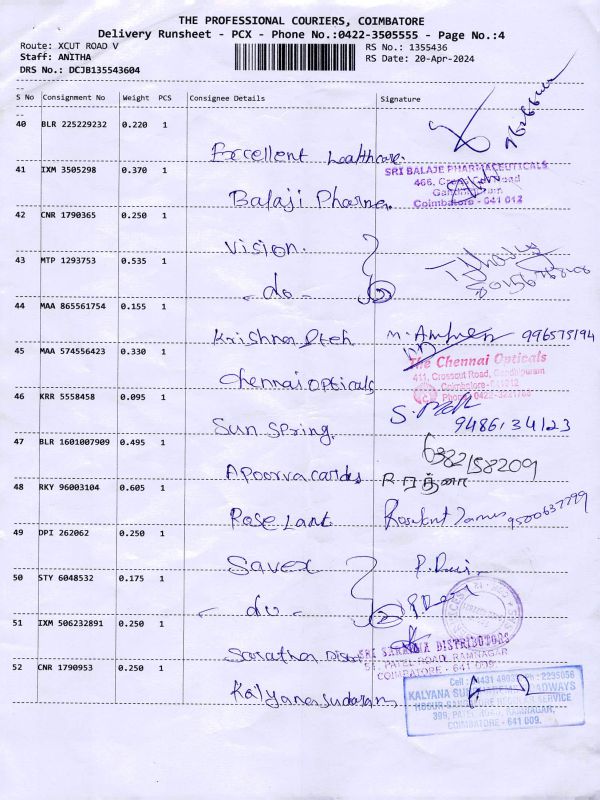 THE PROFESSIONAL COURIERS, COIMBATORE
Delivery Runsheet - PCX - Phone No.:0422-3505555 - Page No.:4
Route: XCUT ROAD V
RS No.: 1355436
Staff: ANITHA
RS Date: 20-Apr-2024
DRS No.: DCJB135543604
S No Consignment No Weight PCS Consignee Details Signature
40 BLR 225229232 0.220 1
Excellent healthcare.
41 IXM 3505298 0.370 1
SRI BALAJE PHARMACEUTICALS
466,
Coimbatore - 641 012
Balaji Pharma
42 CNR 1790365 0.250 1
Vision.
43 MTP 1293753 0.535 1
- do - 2
44 MAA 865561754 0.155 1
Krishna
45 MAA 574556423 0.330 1
The Chennai Opticals
411, Crosscut Road, Gandhipuram
Coimbatore - 641012
Chennai Opticals
46 KRR 5558458 0.095 1
Sun Spring. 9486134123
47 BLR 1601007909 0.495 1
6382158209
Apoorva cards
48 RKY 96003104 0.605 1
Rose Lant
49 DPI 262062 0.250 1
Savex
50 STY 6048532 0.175 1
- do - 2
51 IXM 506232891 0.250 1
SRI SARATHA DISTRIBUTORS
PATEL ROAD, RAMNAGAR
COIMBATORE - 641 009.
Saratha Dist
52 CNR 1790953 0.250 1
KALYANA
399, RAMNAGAR,
COIMBATORE - 641 009.
Kalyanasundaram